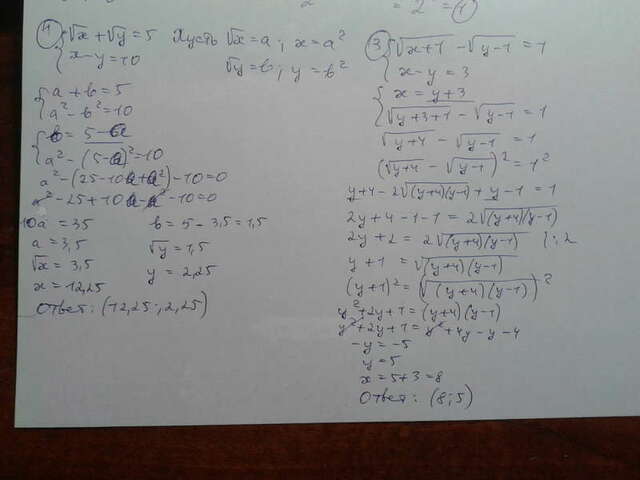 2 = 2 = 1
4) { √x + √y = 5 Пусть √x = a ; x = a²
x - y = 10 √y = b ; y = b²
{ a + b = 5
a² - b² = 10
{ b = 5 - a
a² - (5 - a)² = 10
a² - (25 - 10a + a²) - 10 = 0
a² - 25 + 10a - a² - 10 = 0
10a = 35 b = 5 - 3,5 = 1,5
a = 3,5 √y = 1,5
√x = 3,5 y = 2,25
x = 12,25
Ответ: (12,25 ; 2,25)
3) { √x+1 - √y-1 = 1
x - y = 3
{ x = y + 3
√y+3+1 - √y-1 = 1
√y+4 - √y-1 = 1
(√y+4 - √y-1)² = 1²
y + 4 - 2√(y+4)(y-1) + y - 1 = 1
2y + 4 - 1 - 1 = 2√(y+4)(y-1)
2y + 2 = 2√(y+4)(y-1) | : 2
y + 1 = √(y+4)(y-1)
(y+1)² = (√(y+4)(y-1))²
y² + 2y + 1 = (y+4)(y-1)
y² + 2y + 1 = y² + 4y - y - 4
-y = -5
y = 5
x = 5 + 3 = 8
Ответ: (8 ; 5)